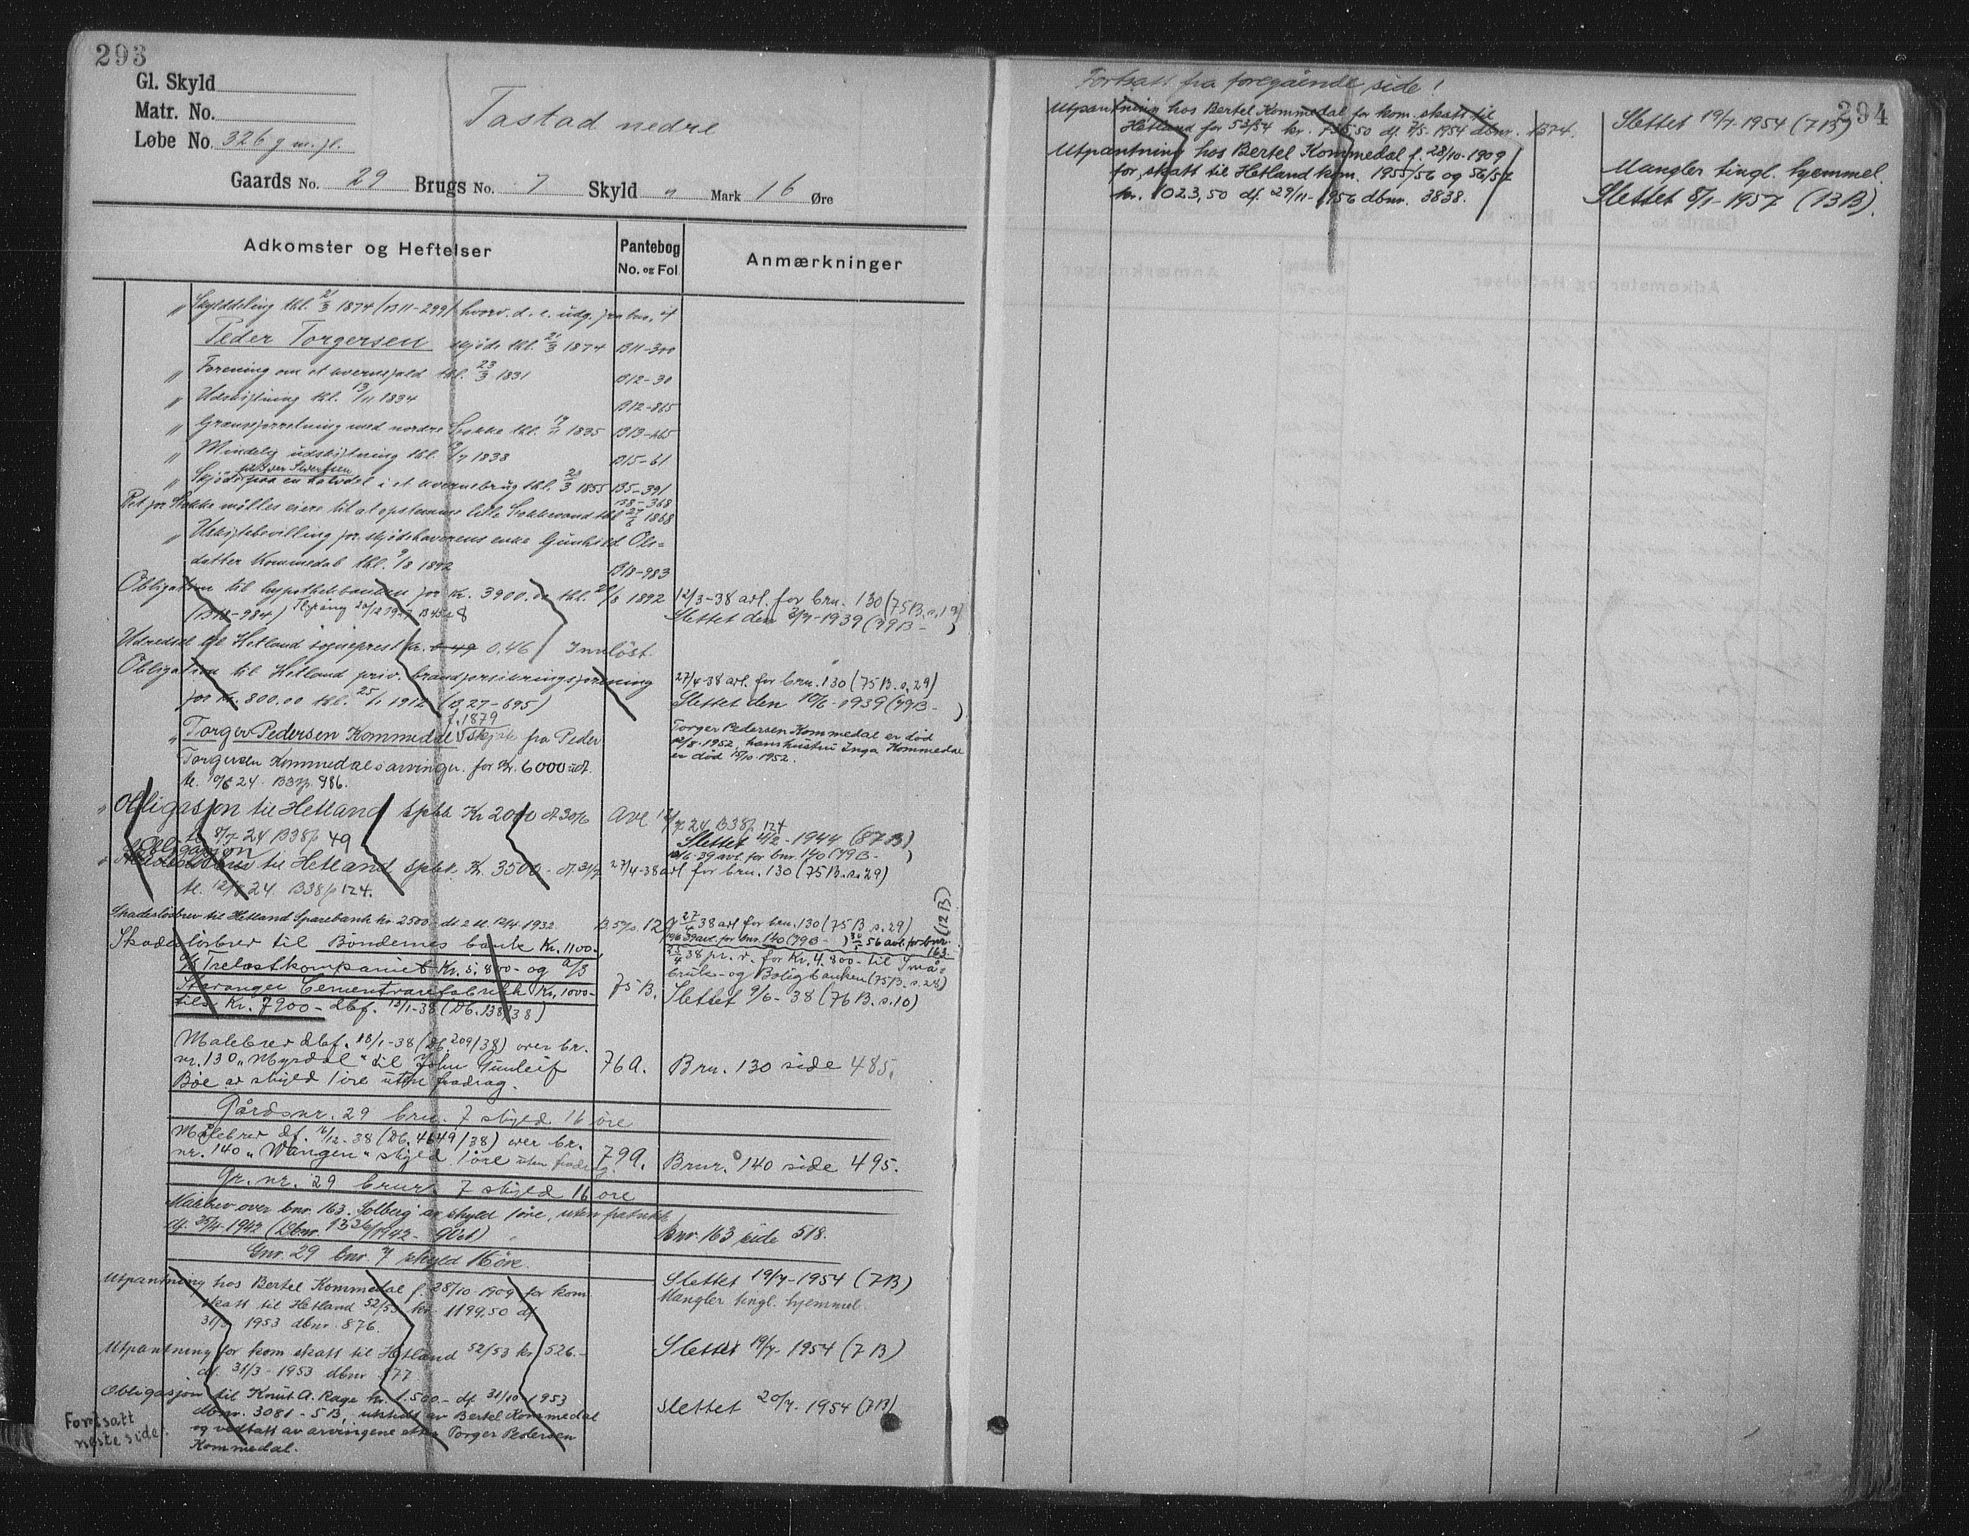 293
Gl. Skyld
Matr. No.
Løbe No. 326 g m. fl.
Tastad nedre
Gaards No. 29 Brugs No. 7 Skyld " Mark 16 Øre
Adkomster og Heftelser
Pantebog No. og Fol.
Anmærkninger
" Skylddeling thl. 21/3 1874 (B11-299) hvorv. d. e. udg. fra bno. 4
Peder Torgersen skjøde thl. 21/3 1874 B11-300
" Forening om et kvernefald thl. 23/3 1831 B12-30
" Udskiftning thl. 13/11 1834 B12-865
" Grænseforretning med nordre Sokke thl. 1835 B13-465
" Mindelig udskiftning thl. 1838 B15-61
fra Iver Sivertsen
" Skjøde paa en halvdel i et kvernebrug thl. 23/3 1855 B5-391
Ret for Stokke mølles eiere til at opstemme lille Stokkevand thl. 27/6 1868 B8-368
" Uskiftebevilling for skjødehaverens enke Gunhild Ols-
datter Kommedal thl. 9/8 1892 B18-983
Obligation til hypothekbanken for Kr. 3900.00 thl. /8 1892 12/3-38 avl. for bru. 130 (75B. s. 19)
(B18-984) 1927 Slettet den 3/7-1939 (79B- )
Udredsel til Hetland sogneprest kr. 0.47 0.46 Innløst.
Obligation til Hetland priv. brandforsikringsforening 27/4-38 avl. for bru. 130 (75B. s. 29)
for Kr. 800.00 thl. 25/1 1912 (B 27-695) Slettet den 10/6-1939 (79B- )
f. 1879
" Torger Pedersen Kommedal skjøte fra Peder Torger Pedersen Kommedal er død
12/8-1952, hans hustru Inga Kommedal
Torgersen Kommedals arvinger for Kr. 6000 er død 15/10.1952.
tl. 10/6 24. B37/ 986.
" Obligasjon til Hetland spbk Kr 2000 dt 30/6 Avl 12/9 24 B38/124
tl. 8/7 24 B38/ 49 Slettet 11/2-1944 (87B)
Obligasjon 10/6-39 avl. for bnr. 140 (79B- )
til Hetland spbk. Kr. 3500.- dt. 31/7 27/4-38 avl for bru. 130 (75B. s. 29)
tl. 12/9 24 B38/124.
Skadesløsbrev til Hetland Sparebank kr. 2500.- dt 2 tl. 12/4 1932. B 57/s. 129 27/4 38 avl for bru. 130 (75B s. 29)
10/6 39 avl. for bnr. 140 (79B- ) 30/5 56 avl. for bnr 163 (12B)
Skadesløsbrev til Bøndernes bank Kr. 1100.- 23/4 38 pr. v. for Kr. 4.800- til Små-
A/S Trelastkompaniet Kr. 5.800- og A/S bruks- og Boligbanken (75B s. 28)
Stavanger Cementvarefabrikk Kr. 1000.- 75B. Slettet 9/6-38 (76B. s. 10)
tils. Kr. 7900- dbf. 13/1-38 (Db. 138/38)
Målebrev dbf. 18/1-38 (Db. 209/38) over br.
nr. 130 "Myrdal" til John Gunleif 76a. Bru. 130 side 485.
Bøe av skyld 1 øre uten fradrag.
Gårdsnr. 29 bru. 7 skyld 16 øre
Målebrev df. 16/12-38 (Db. 4649/38) over br.
nr. 140 "Vangen" skyld 1 øre uten fradrag. 79a. Brur. 140 side 495.
Gr. nr. 29 brur. 7 skyld 16 øre
Målebrev over bnr 163 "Solberg" av skyld 1 øre, uten fratrekk
df. 25/4-1942 (Dbnr. 1326/1942- ) Bnr. 163 side 518.
Gnr. 29 bnr 7 skyld 16 øre.
Utpantning hos Bertel Kommedal f. 28/10-1909 for kom Slettet 19/7-1954 (7B)
skatt til Hetland 52/53 kr. 1199,50 df Mangler tingl. hjemmel.
31/3 1953 dbnr. 876.
Utpantning for kom skatt til Hetland 52/53 kr. 526.- Slettet 19/7-1954 (7B)
df. 31/3-1953 dbnr. 877
Obligasjon til Knut A. Rage kr. 1.500.- df. 31/10-1953 Slettet 20/7-1954 (7B)
dbnr. 3081-5B, utstedt av Bertel Kommedal
og vedtatt av arvingene etter Torger Pedersen
Kommedal.
Fortsatt
neste side.
294
Fortsatt fra foregående side!
Utpantning hos Bertel Kommedal for kom. skatt til
Hetland for 53/54 kr. 735.50 df. 7/5-1954 dbnr. 1374. Slettet 19/7-1954 (7B)
Utpantning hos Bertel Kommedal f. 28/10-1909 Mangler tingl. hjemmel.
for skatt til Hetland kom. 1955/56 og 56/57 Slettet 8/1-1957 (13B).
kr. 1023,50 df. 29/11-1956 dbnr. 3838.